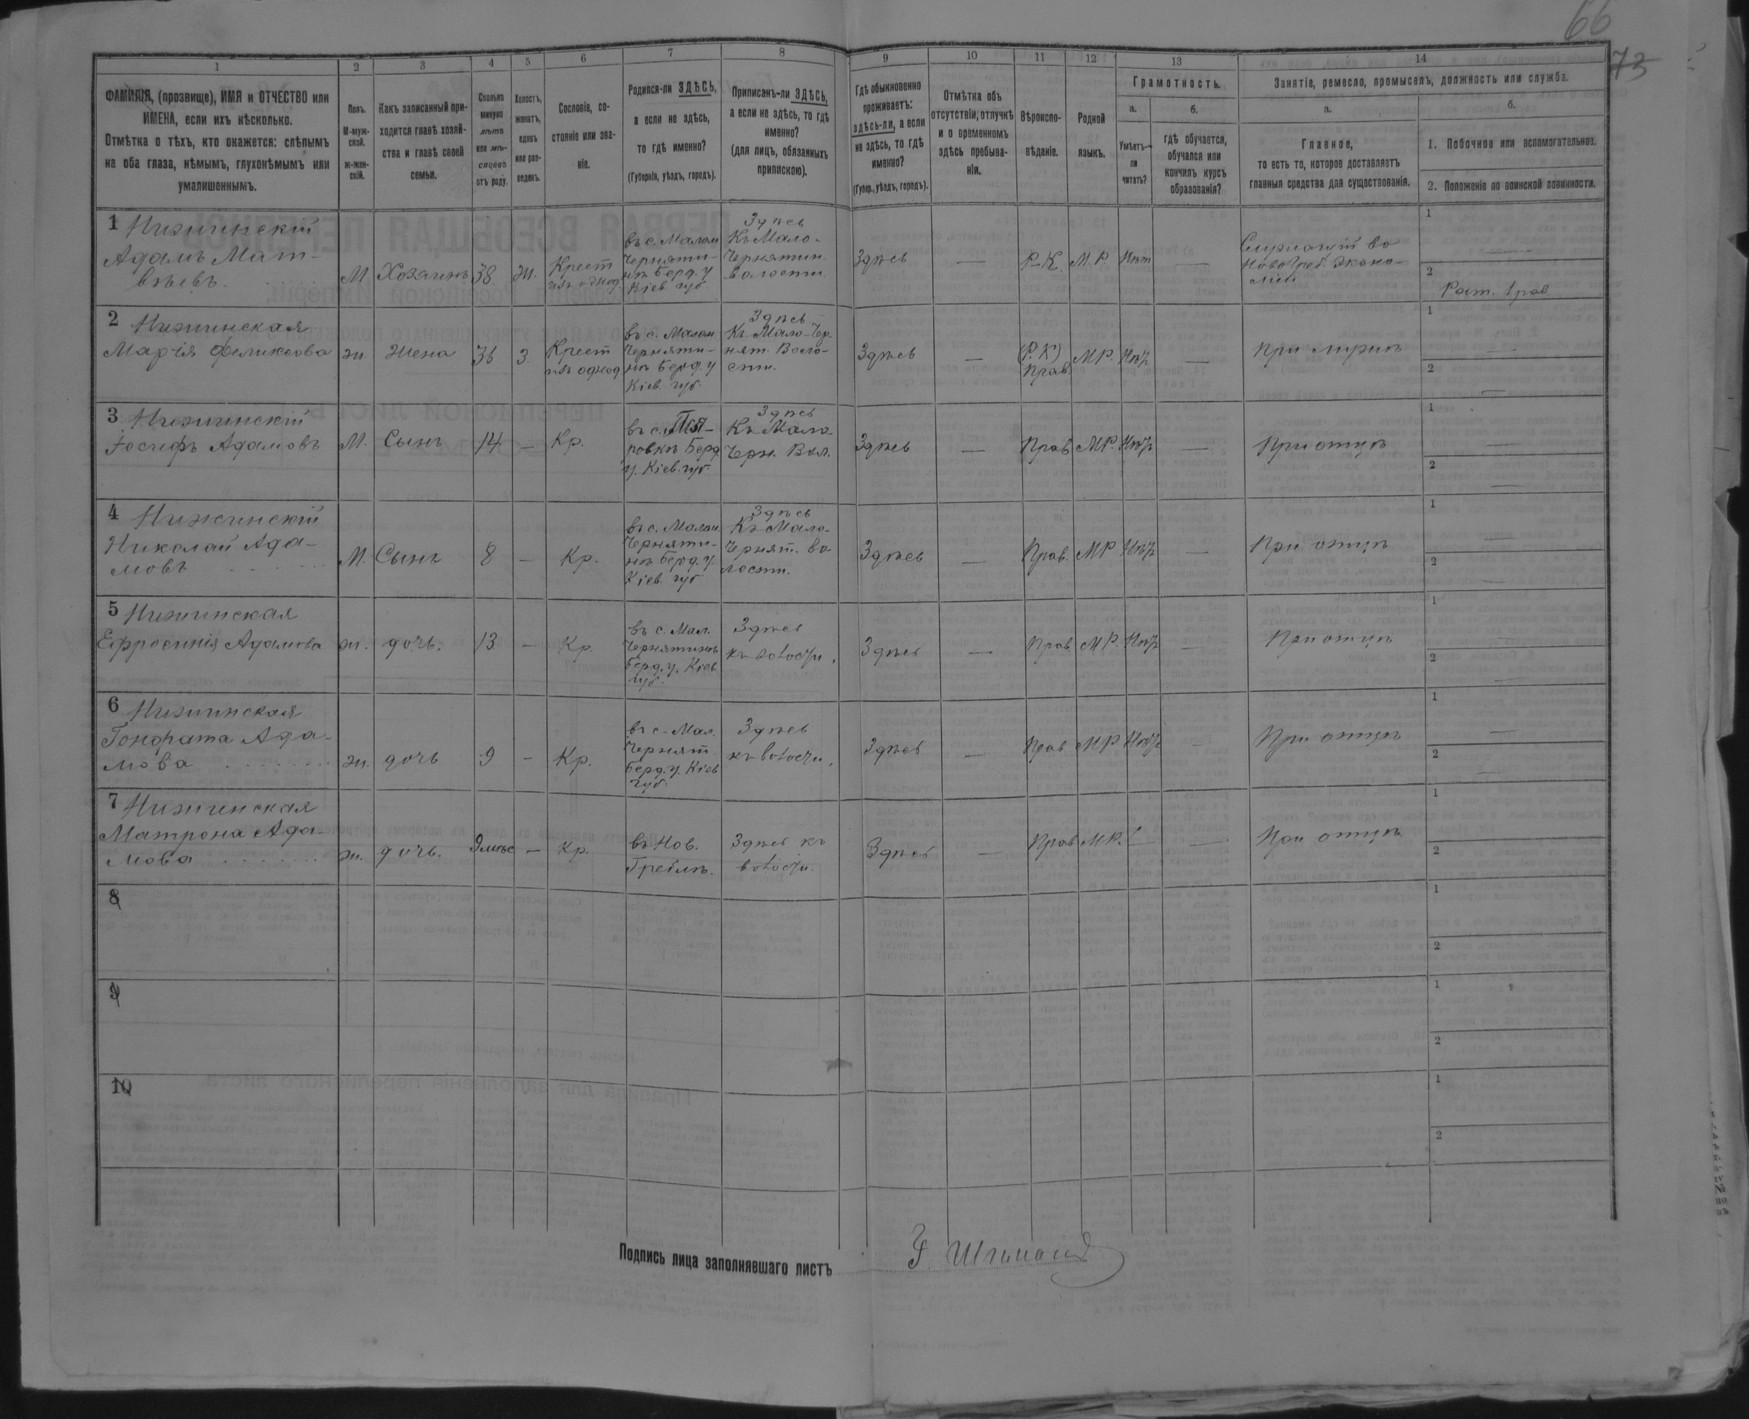 66
73
1 2 3 4 5 6 7 8 9 10 11 12 13 14
ФАМИЛІЯ, (прозвище), ИМЯ и ОТЧЕСТВО или
ИМЕНА, если ихъ нѣсколько.
Отмѣтка о тѣхъ, кто окажется: слѣпымъ
на оба глаза, нѣмымъ, глухонѣмымъ или
умалишеннымъ.
Полъ.
М-муж-
ской.
ж-жен-
скій.
Какъ записанный при-
ходится главѣ хозяй-
ства и главѣ своей
семьи.
Сколько
минуло
лѣтъ
или мѣ-
сяцевъ
отъ роду.
Холостъ,
женатъ,
вдовъ
или раз-
веденъ.
Сословіе, со-
стояніе или зва-
ніе.
Родился-ли ЗДѢСЬ,
а если не здѣсь,
то гдѣ именно?
(Губернія, уѣздъ, городъ).
Приписанъ-ли ЗДѢСЬ,
а если не здѣсь, то гдѣ
именно?
(для лицъ, обязанныхъ
припискою).
Гдѣ обыкновенно
проживаетъ:
здѣсь-ли, а если
не здѣсь, то гдѣ
именно?
(Губер., уѣздъ, городъ).
Отмѣтка объ
отсутствіи, отлучкѣ
и о временномъ
здѣсь пребыва-
ніи.
Вѣроиспо-
вѣданіе.
Родной
языкъ.
Грамотность.
а.
Умѣетъ-
ли
читать?
б.
гдѣ обучается,
обучался или
кончилъ курсъ
образованія?
Занятіе, ремесло, промыселъ, должность или служба.
а.
Главное,
то есть то, которое доставляетъ
главныя средства для существованія.
б.
1. Побочное или вспомогательное.
2. Положеніе по воинской повинности.
1 Нижинскій
Адамъ Мат-
вѣевъ.
М Хозяинъ 38 ж. Крест
изъ однод
въ с. Малом
Черняти-
нѣ Берд. у
Кіев губ
Здѣсь
Къ Мало-
Чернятин
волости
Здѣсь — Р-К. М.Р. Нѣт —
во
Ново Греб. Эконо-
міи
1 —
2
2 Нижинская
Марія Феликсова
ж. Жена 36 З. Крест
изъ однод
въ с. Малом
Черняти-
нѣ Берд. у
Кіев. губ.
Здѣсь
Къ Мало-Чер
нят. Воло-
сти.
Здѣсь — (Р.К)
Прав. МР. Нѣт —
При мужѣ
1 —
2 —
3 Нижинскій
Іосифъ Адамовъ
М. Сынъ 14 — Кр.
въ с. Поп-
повкѣ Берд
у. Кіев. губ
Здѣсь
Къ Мало-
Черн. Вол.
Здѣсь — Прав. МР. Нѣт —
При отцѣ
1 —
2 —
4 Нижинскій
Николай Ада-
мовъ
М. Сынъ 8 — Кр.
въ с. Малом
Черняти-
нѣ Берд. у.
Кіев. губ
Здѣсь
Къ Мало-
Чернят. во
лости.
Здѣсь — Прав. МР. Нѣт —
При отцѣ
1 —
2 —
5 Нижинская
Ефросинія Адамова
ж. дочь. 13 — Кр.
въ с. Мал.
Чернятинѣ
Берд. у. Кіев
губ.
Здѣсь
къ волости.
Здѣсь — Прав. МР. Нѣт —
При отцѣ
1 —
2 —
6 Нижинская
Гонфрата Ада-
мова
ж. дочь 9 — Кр.
въ с. Мал.
Чернят
Берд. у. Кіев
губ.
Здѣсь
къ волости.
Здѣсь — Прав МР Нѣт —
При отцѣ
1 —
2 —
7 Нижинская
Матрона Ада-
мова
ж. дочь. 9 мѣс — Кр.
въ Нов.
Греблѣ.
Здѣсь къ
волости.
Здѣсь — Прав МР. — —
При отцѣ
1 —
2 —
8
1
2
9
1
2
10
1
2
Подпись лица заполнявшаго листъ